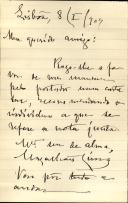 Lisboa, 8/I/909
Meu querido amigo:
Rogo-lhe o fa-
vor de me mandar
pelo portador uma carta
sua, recommendando o
individuo a que se
refere a nota junta.
Mto seu de alma,
Magalhães Lima